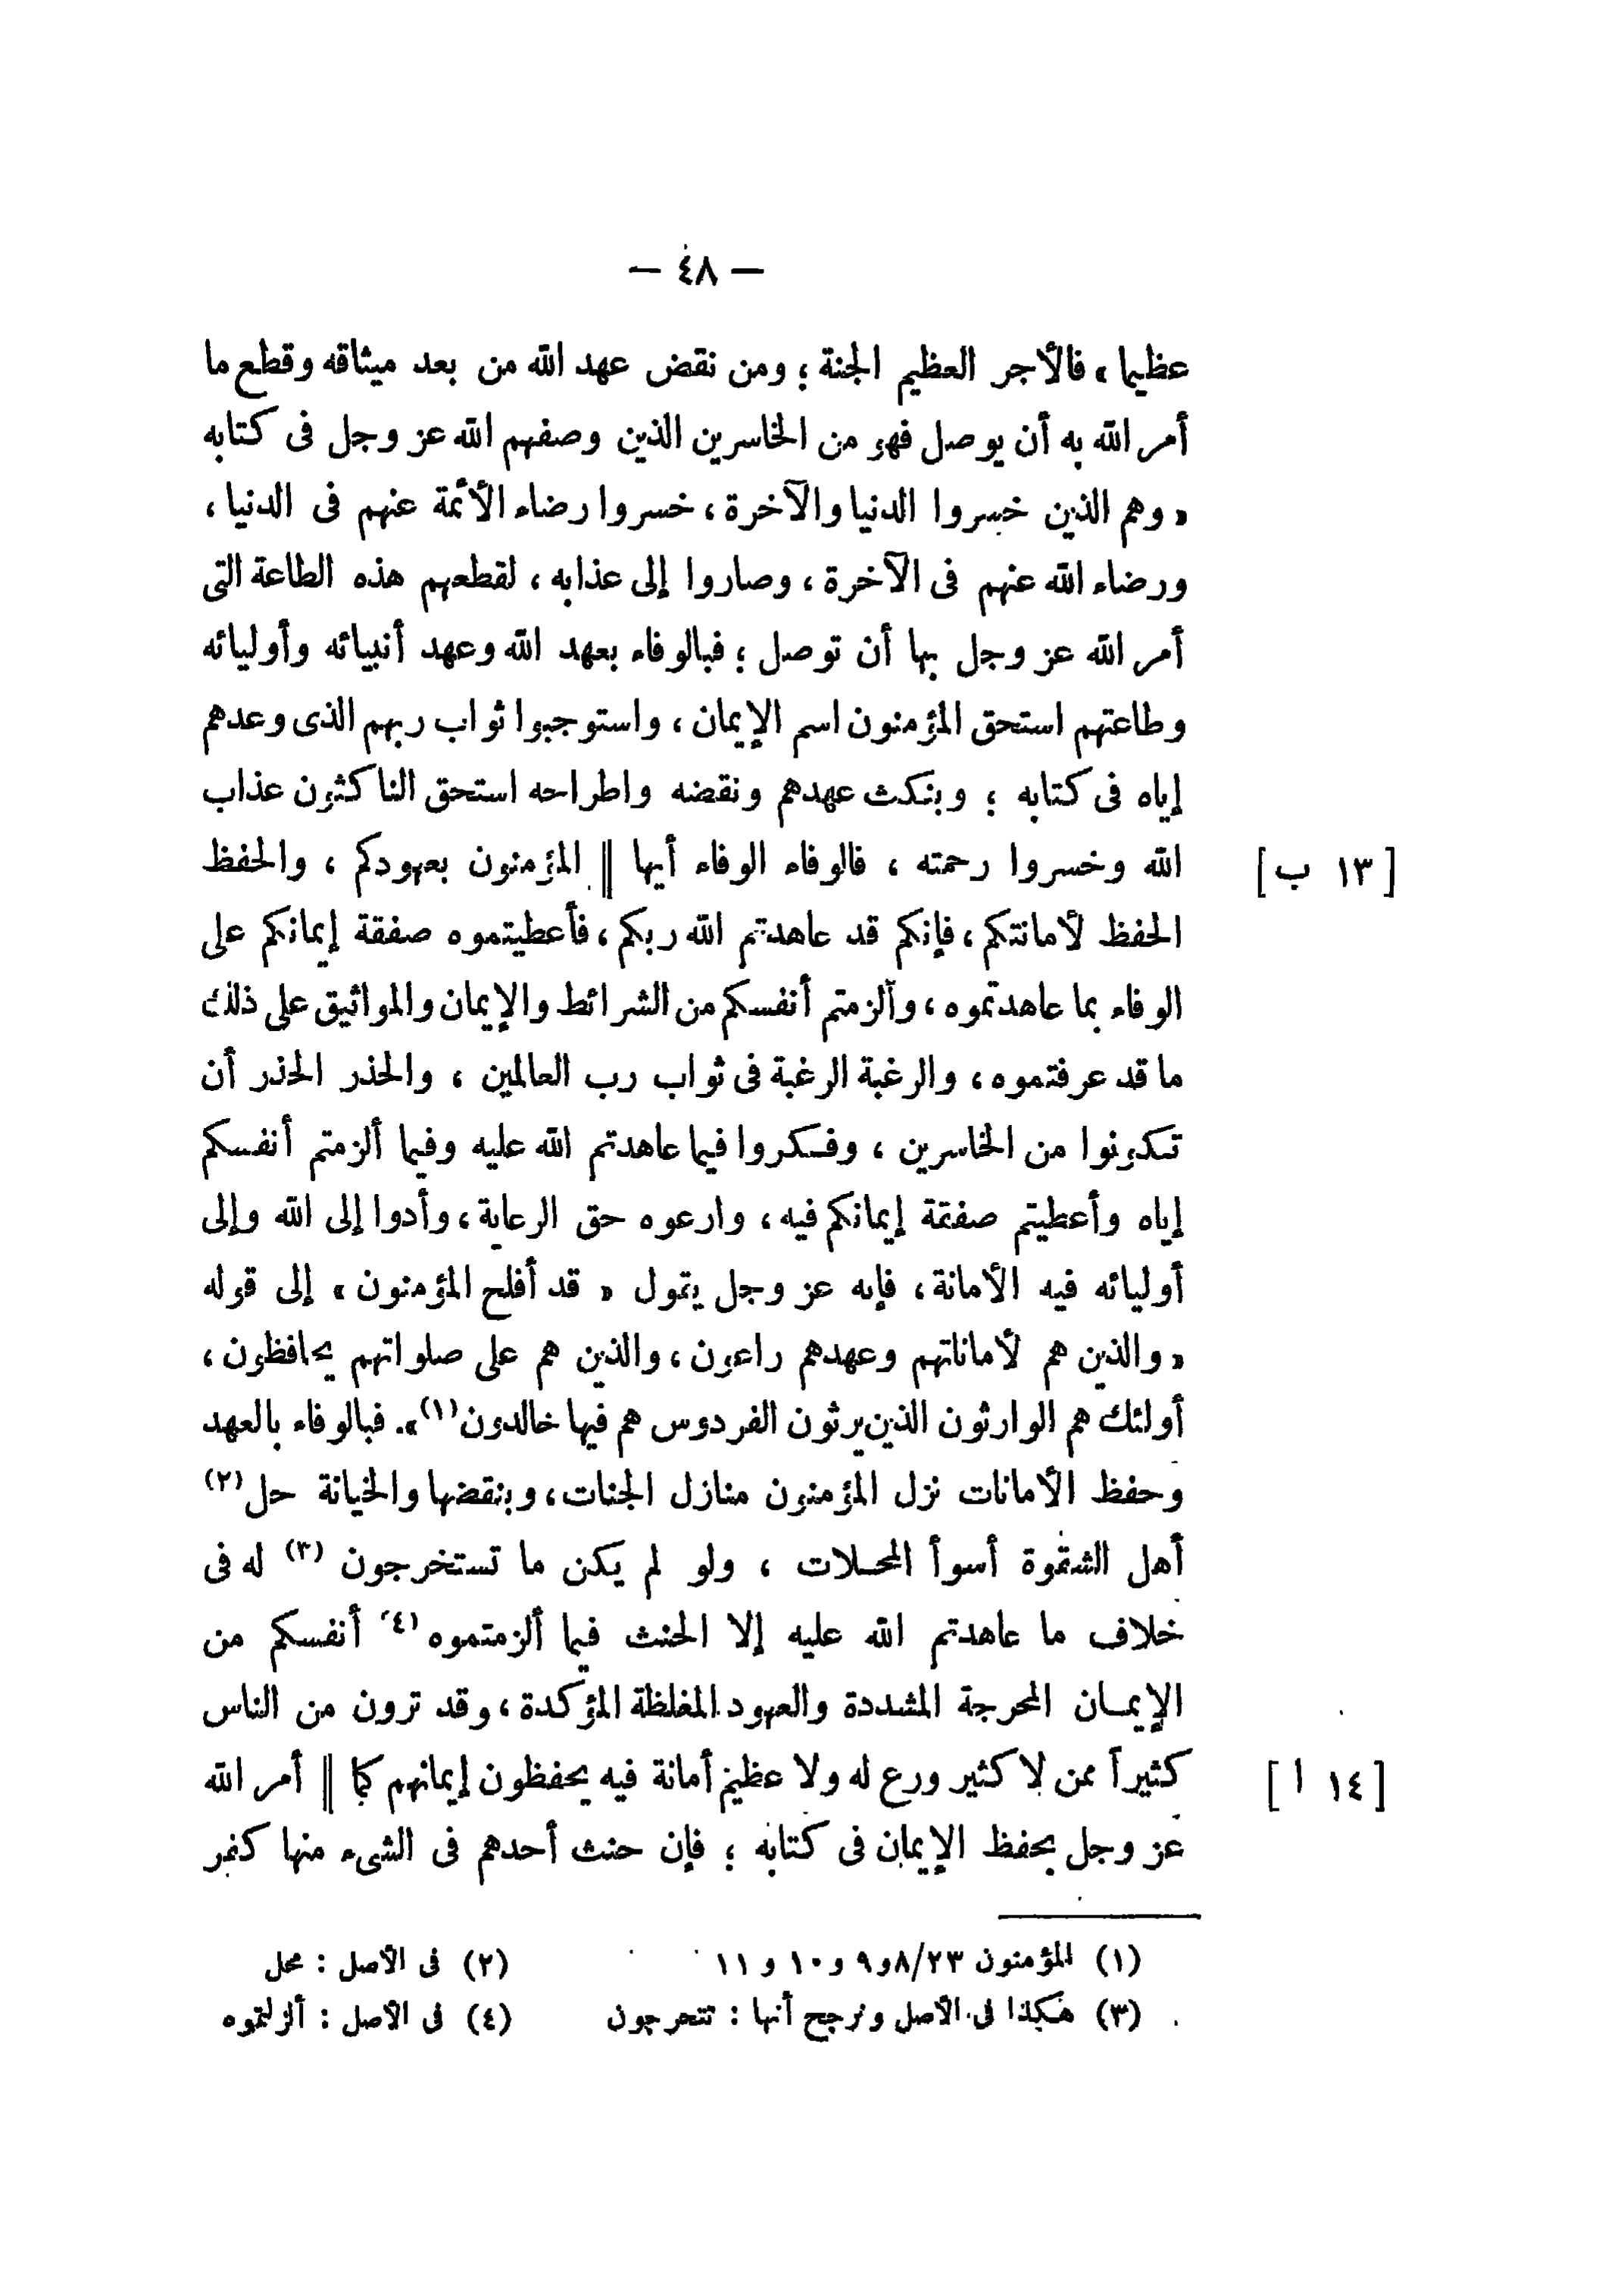 — ٤٨ —
عظيما » فالأجر العظيم الجنة ؛ ومن نقض عهد الله من بعد ميثاقه وقطع ما
أمر الله به أن يوصل فهو من الخاسرين الذين وصفهم الله عز وجل فى كتابه
« وهم الذين خسروا الدنيا والآخرة ، خسروا رضاء الأئمة عنهم فى الدنيا ،
ورضاء الله عنهم فى الآخرة ، وصاروا إلى عذابه ، لقطعهم هذه الطاعة التى
أمر الله عز وجل بها أن توصل ؛ فبالوفاء بعهد الله وعهد أنبيائه وأوليائه
وطاعتهم استحق المؤمنون اسم الإيمان ، واستوجبوا ثواب ربهم الذى وعدهم
إياه فى كتابه ؛ وبنكث عهدهم ونقضه واطراحه استحق الناكثون عذاب
الله وخسروا رحمته ، فالوفاء الوفاء أيها || المؤمنون بعهودكم ، والحفظ [ ١٣ ب ]
الحفظ لأمانتكم ، فإنكم قد عاهدتم الله ربكم ، فأعطيتموه صفقة إيمانكم على
الوفاء بما عاهدتموه ، وألزمتم أنفسكم من الشرائط والإيمان والمواثيق على ذلك
ما قد عرفتموه ، والرغبة الرغبة فى ثواب رب العالمين ، والحذر الحذر أن
تكونوا من الخاسرين ، وفكروا فيما عاهدتم الله عليه وفيما ألزمتم أنفسكم
إياه وأعطيتم صفقة إيمانكم فيه ، وارعوه حق الرعاية ، وأدوا إلى الله وإلى
أوليائه فيه الأمانة ، فإنه عز وجل يقول « قد أفلح المؤمنون » إلى قوله
« والذين هم لأماناتهم وعهدهم راعون ، والذين هم على صلواتهم يحافظون ،
أولئك هم الوارثون الذين يرثون الفردوس هم فيها خالدون (١) ». فبالوفاء بالعهد
وحفظ الأمانات نزل المؤمنون منازل الجنات ، وبنقضها والخيانة حل (٢)
أهل الشقوة أسوأ المحلات ، ولو لم يكن ما تستخرجون (٣) له فى
خلاف ما عاهدتم الله عليه إلا الحنث فيما ألزمتموه (٤) أنفسكم من
الإيمان المحرجة المشددة والعهود المغلظة المؤكدة ، وقد ترون من الناس
كثيراً ممن لا كثير ورع له ولا عظيم أمانة فيه يحفظون إيمانهم كما || أمر الله [ ١٤ أ ]
عز وجل بحفظ الإيمان فى كتابه ؛ فإن حنث أحدهم فى الشىء منها كفر
(١) المؤمنون ٨/٢٣ و٩ و١٠ و١١ (٢) فى الأصل : محل
(٣) هكذا فى الأصل ونرجح أنها : تتحرجون (٤) فى الأصل : ألزلتموه